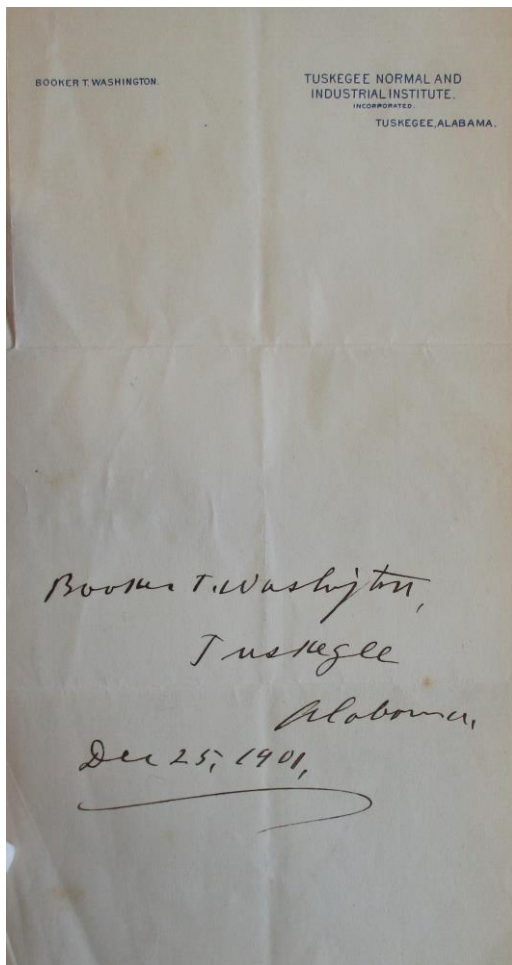 BOOKER T. WASHINGTON.
TUSKEGEE NORMAL AND
INDUSTRIAL INSTITUTE.
INCORPORATED.
TUSKEGEE, ALABAMA.
Booker T. Washington,
Tuskegee
Alabama,
Dec 25, 1901,